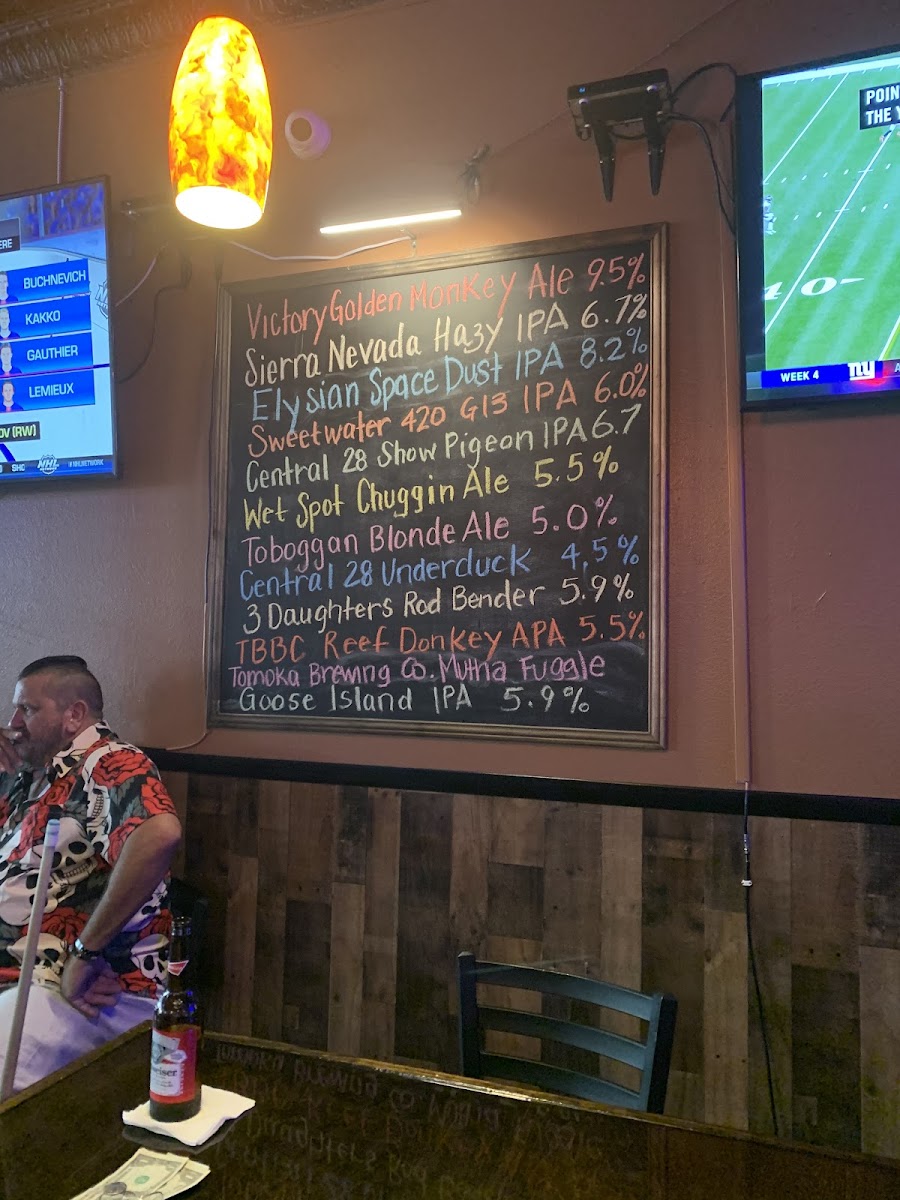 ERE
BUCHNEVICH
KAKKO
GAUTHIER
LEMIEUX
OV (RW)
SHO
NHL
NHLNETWORK
Victory Golden Monkey Ale 9.5%
Sierra Nevada Hazy IPA 6.7%
Elysian Space Dust IPA 8.2%
Sweetwater 420 G13 IPA 6.0%
Central 28 Show Pigeon IPA 6.7
Wet Spot Chuggin Ale 5.5%
Toboggan Blonde Ale 5.0%
Central 28 Underduck 4,5%
3 Daughters Rod Bender 5.9%
TBBC Reef Donkey APA 5.5%
Tomoka Brewing Co. Mutha Fuggle
Goose Island IPA 5.9%
POIN
THE Y
40
WEEK 4
ny
A
weiser